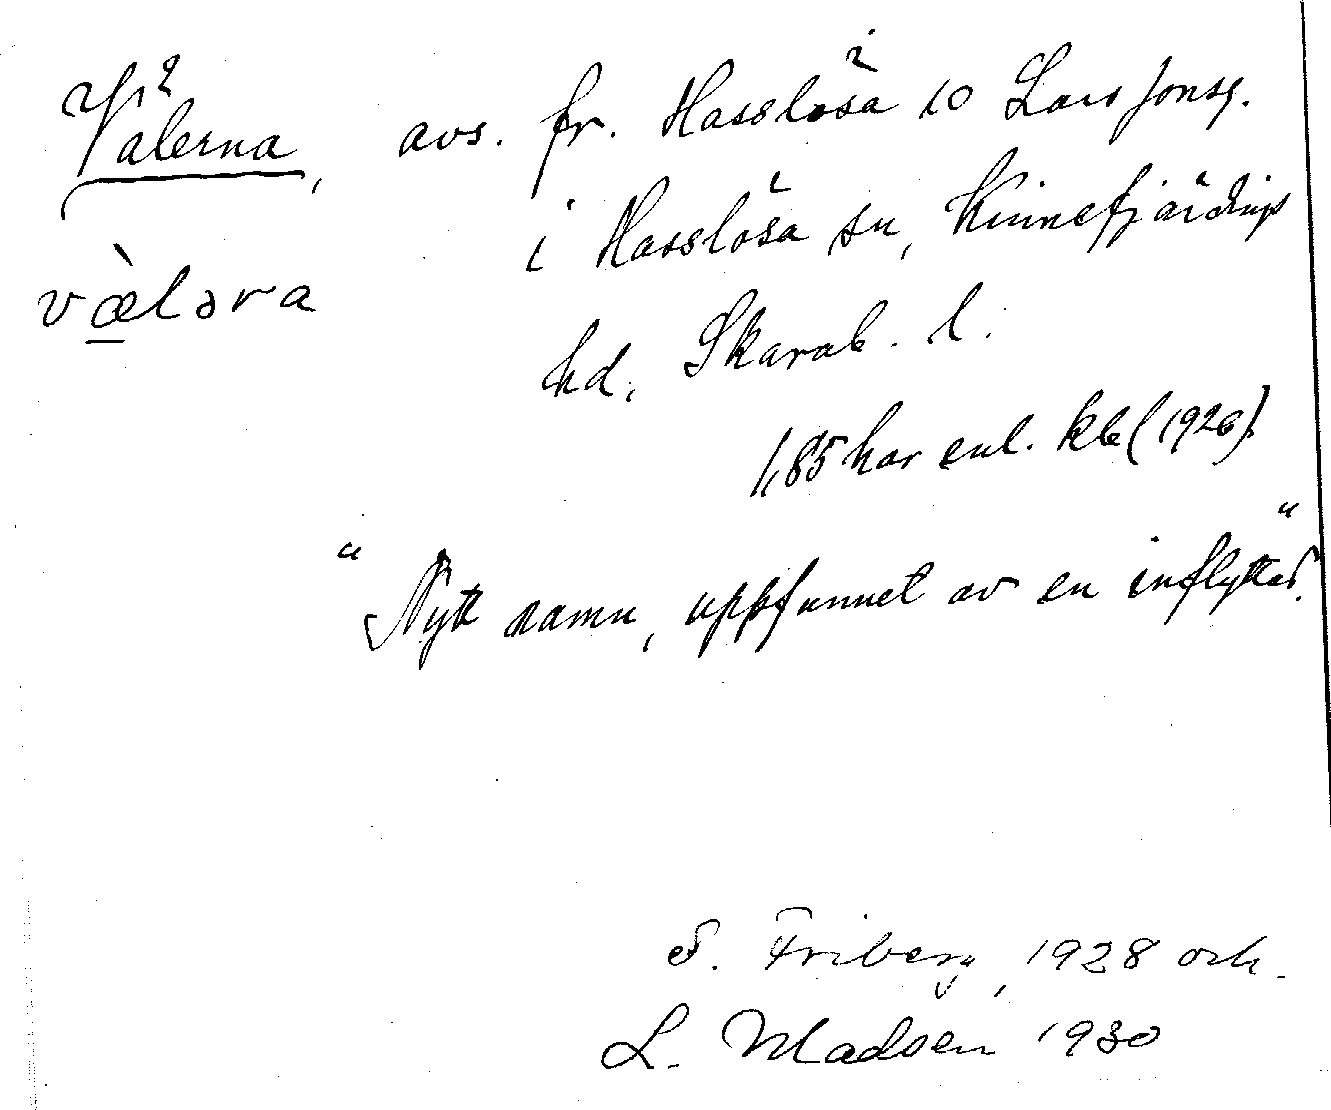 Välerna, avs. fr. Hasslösa 10 Lars Jonsg.
i Hasslösa sn, Kinnefjärdings
væ̀ləra
hd, Skarab. l.
1,85 har enl. kb (1926).
"Nytt namn, uppfunnet av en inflyttad."
S. Friberg, 1928 och
L. Madsen 1930